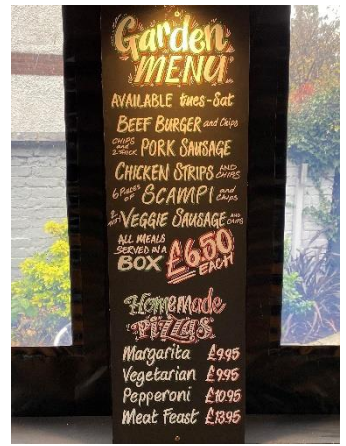 Garden
MENU
AVAILABLE tues-Sat
BEEF BURGER and Chips
CHIPS and 2 THICK PORK SAUSAGE
CHICKEN STRIPS AND CHIPS
6 Pieces of SCAMPI and Chips
VEGGIE SAUSAGE AND CHIPS
ALL MEALS
SERVED IN A
BOX £6.50
EACH
Homemade
PIZZAS
Margarita £9.95
Vegetarian £9.95
Pepperoni £10.95
Meat Feast £13.95